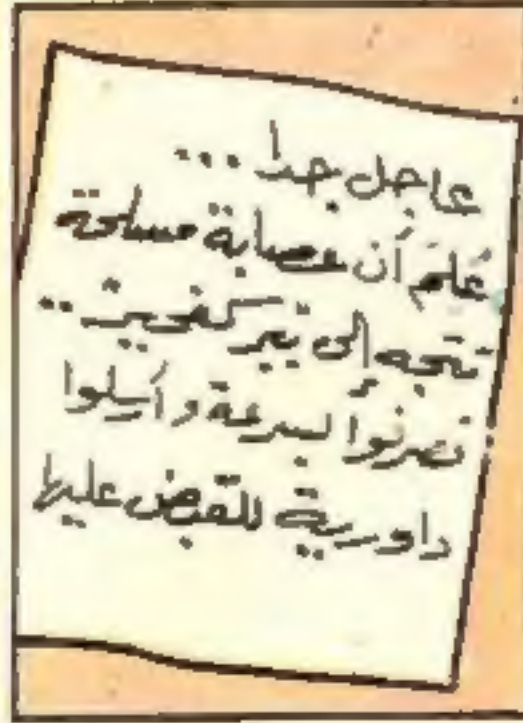 عاجل جدا ...
عُلمَ أن عصابة مسلحة
تتجه إلى نيير كفحيز ..
تصرفوا بسرعة و أرسلوا
داورية للقبض عليها